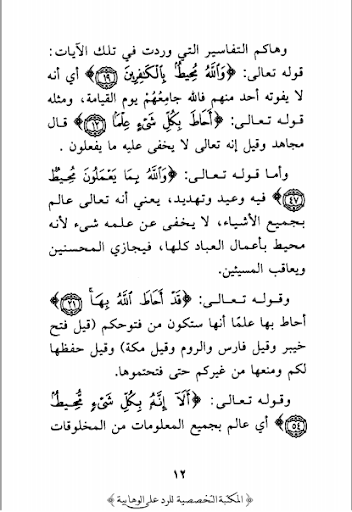 وهاكم التفاسير التي وردت في تلك الآيات:
قوله تعالى: ﴿وَاللَّهُ مُحِيطٌ بِالْكَافِرِينَ ﴿١٩﴾﴾ أي أنه
لا يفوته أحد منهم فالله جامِعُهُمْ يوم القيامة، ومثله
قوله تعالى: ﴿أَحَاطَ بِكُلِّ شَيْءٍ عِلْمًا ﴿١٢﴾﴾ قال
مجاهد وقيل إنه تعالى لا يخفى عليه ما يفعلون .
وأما قوله تعالى: ﴿وَاللَّهُ بِمَا يَعْمَلُونَ مُحِيطٌ
﴿٤٧﴾﴾ فيه وعيد وتهديد، يعني أنه تعالى عالم
بجميع الأشياء، لا يخفى عن علمه شىء لأنه
محيط بأعمال العباد كلها، فيجازي المحسنين
ويعاقب المسيئين.
وقوله تعالى: ﴿قَدْ أَحَاطَ اللَّهُ بِهَا ﴿٢١﴾﴾
أحاط بها علمًا أنها ستكون من فتوحكم (قيل فتح
خيبر وقيل فارس والروم وقيل مكة) وقيل حفظها
لكم ومنعها من غيركم حتى فتحتموها.
وقوله تعالى: ﴿أَلَا إِنَّهُ بِكُلِّ شَيْءٍ مُحِيطٌ
﴿٥٤﴾﴾ أي عالم بجميع المعلومات من المخلوقات
١٢
﴿المكتبة التخصصية للرد على الوهابية﴾